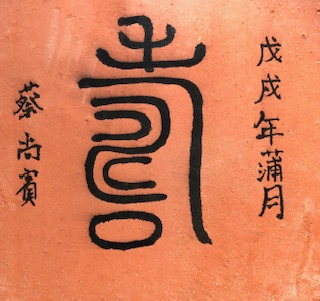 戊戌年蒲月
壽
蔡尚賓